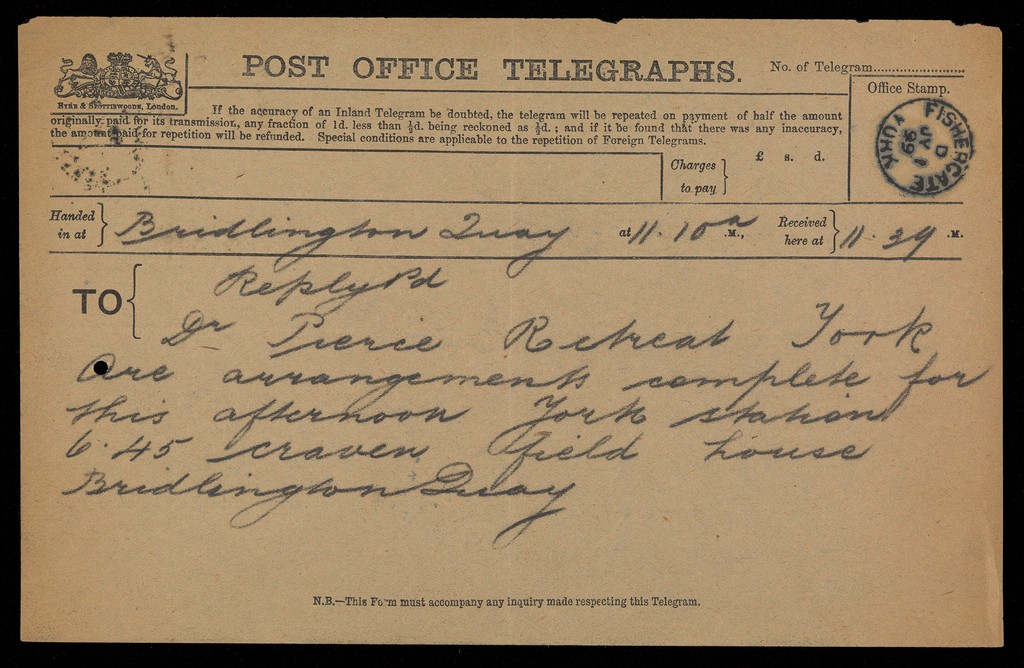 POST OFFICE TELEGRAPHS.
No. of Telegram
Office Stamp.
EYRE & SPOTTISWOODE, London.
If the accuracy of an Inland Telegram be doubted, the telegram will be repeated on payment of half the amount
originally paid for its transmission, any fraction of 1d. less than ½d. being reckoned as ½d.; and if it be found that there was any inaccuracy,
the amount paid for repetition will be refunded. Special conditions are applicable to the repetition of Foreign Telegrams.
FISHERGATE YORK
D
99
Charges to pay
£ s. d.
Handed in at Bridlington Quay at 11.10a .M., Received here at 11.39 .M.
TO
Reply Pd
Dr Pierce Retreat York
Are arrangements complete for
this afternoon York station
6.45 craven field house
Bridlington Quay
N.B.—This Form must accompany any inquiry made respecting this Telegram.